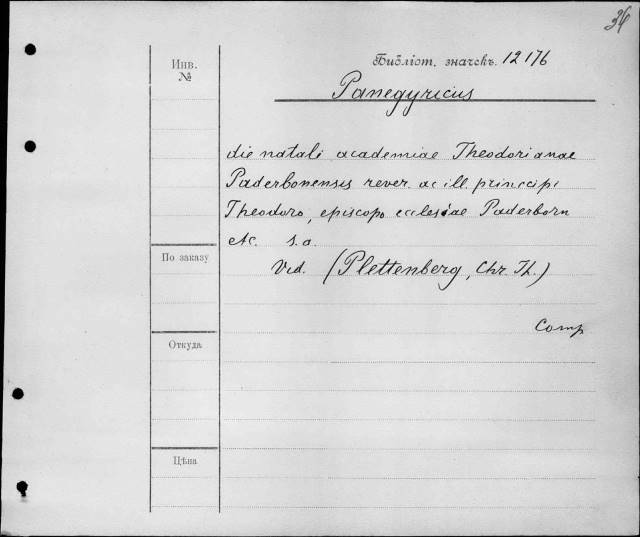 34
Инв.
№
Библіот. значекъ. 12176
Panegyricus
die natali academiae Theodorianae
Paderbonensis rever. ac ill. principi
Theodoro, episcopo ecclesiae Paderborn
etc. s. a.
По заказу
Vid. (Plettenberg, Chr. Th.)
Comp
Откуда
Цѣна